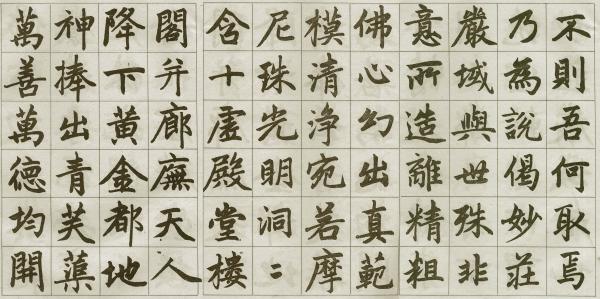 不則吾何取焉
乃為說偈妙莊
嚴域與世殊非
意所造離精粗
佛心幻出真範
模清淨宛若摩
尼珠光明洞〻
含十虛殿堂楼
閣并廊廡天人
降下黄金都地
神捧出青芙蕖
萬善萬德均開